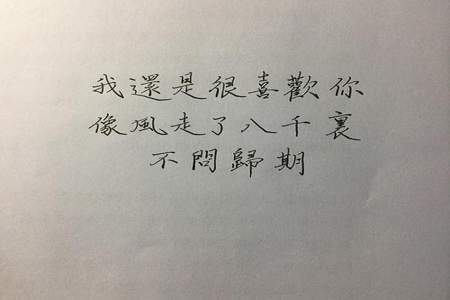 我還是很喜歡你
像風走了八千裏
不問歸期